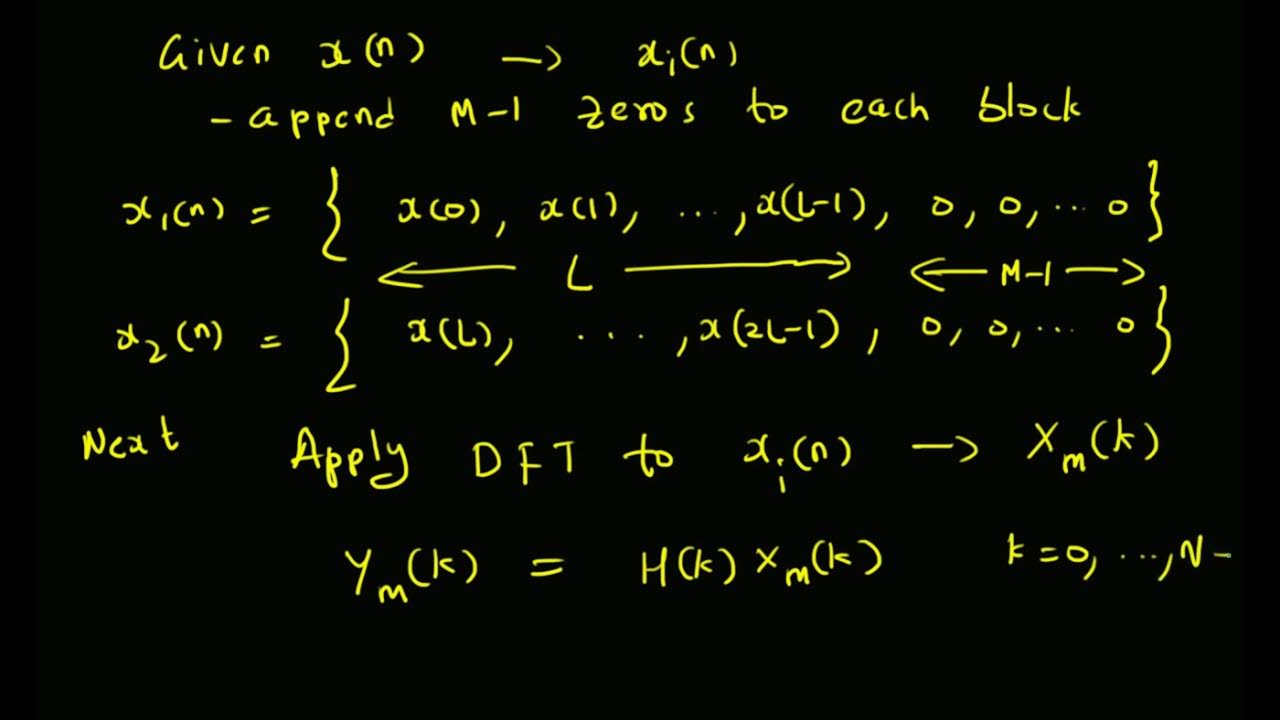 Given x(n) → xᵢ(n)
- append M-1 zeros to each block
x₁(n) = { x(0), x(1), ..., x(L-1), 0, 0, ... 0 }
← L → ← M-1 →
x₂(n) = { x(L), ...., x(2L-1), 0, 0, ... 0 }
Next Apply DFT to xᵢ(n) → Xₘ(k)
Yₘ(k) = H(k) Xₘ(k) k = 0, ..., N -